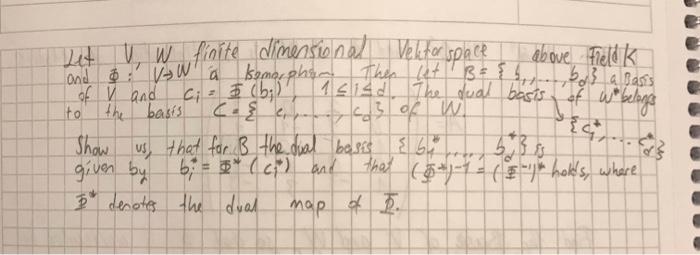 Let V, W finite dimensional Vektorspace above Field K
and Φ: V→W a Isomorphism Then let B = { b₁, ..., b_d } a Basis
of V and c_i = Φ(b_i), 1 ≤ i ≤ d. The dual basis of W* belongs
to the basis C = { c₁, ..., c_d } of W. {c₁*, ... c_d*}
Show us, that for B the dual basis { b₁*, ..., b_d*} is
given by b_i* = Φ*(c_i*) and that (Φ*)⁻¹ = (Φ⁻¹)* holds, where
Φ* denotes the dual map of Φ.